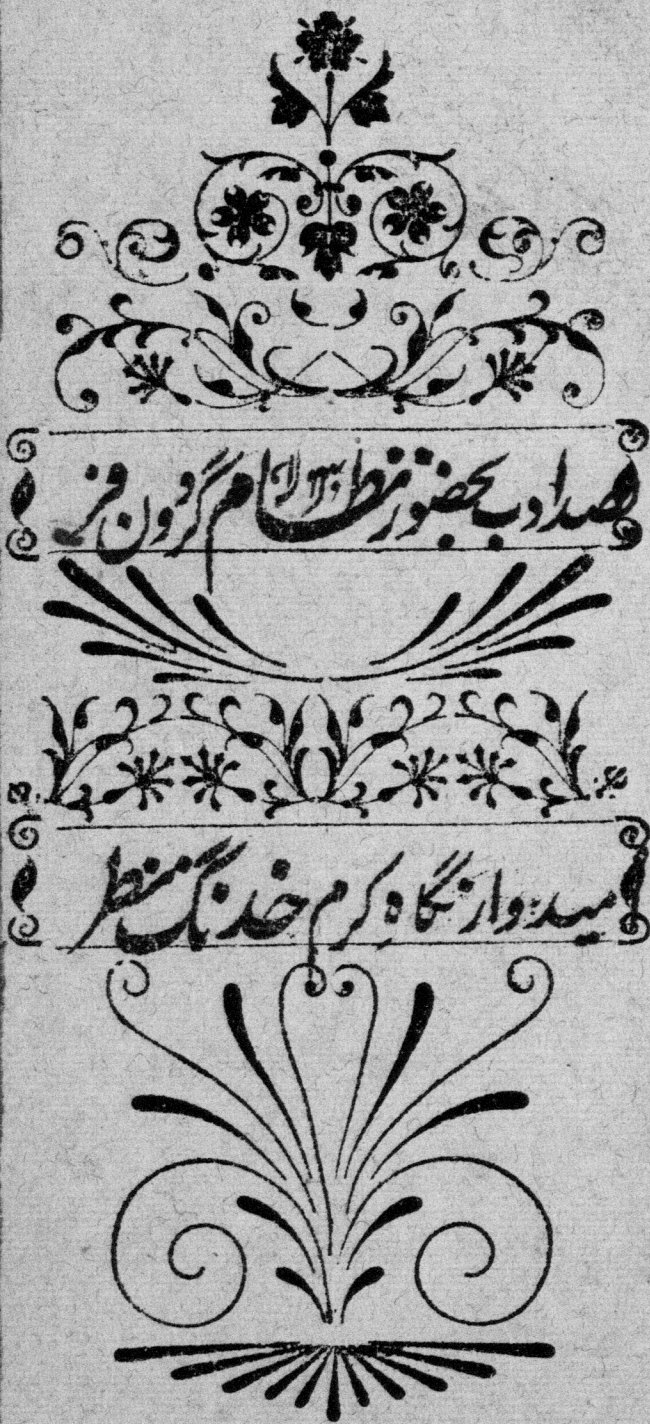 بصد ادب بحضور نظام گردون فر
امیدوار نگاہِ کرم خدنگ منظر